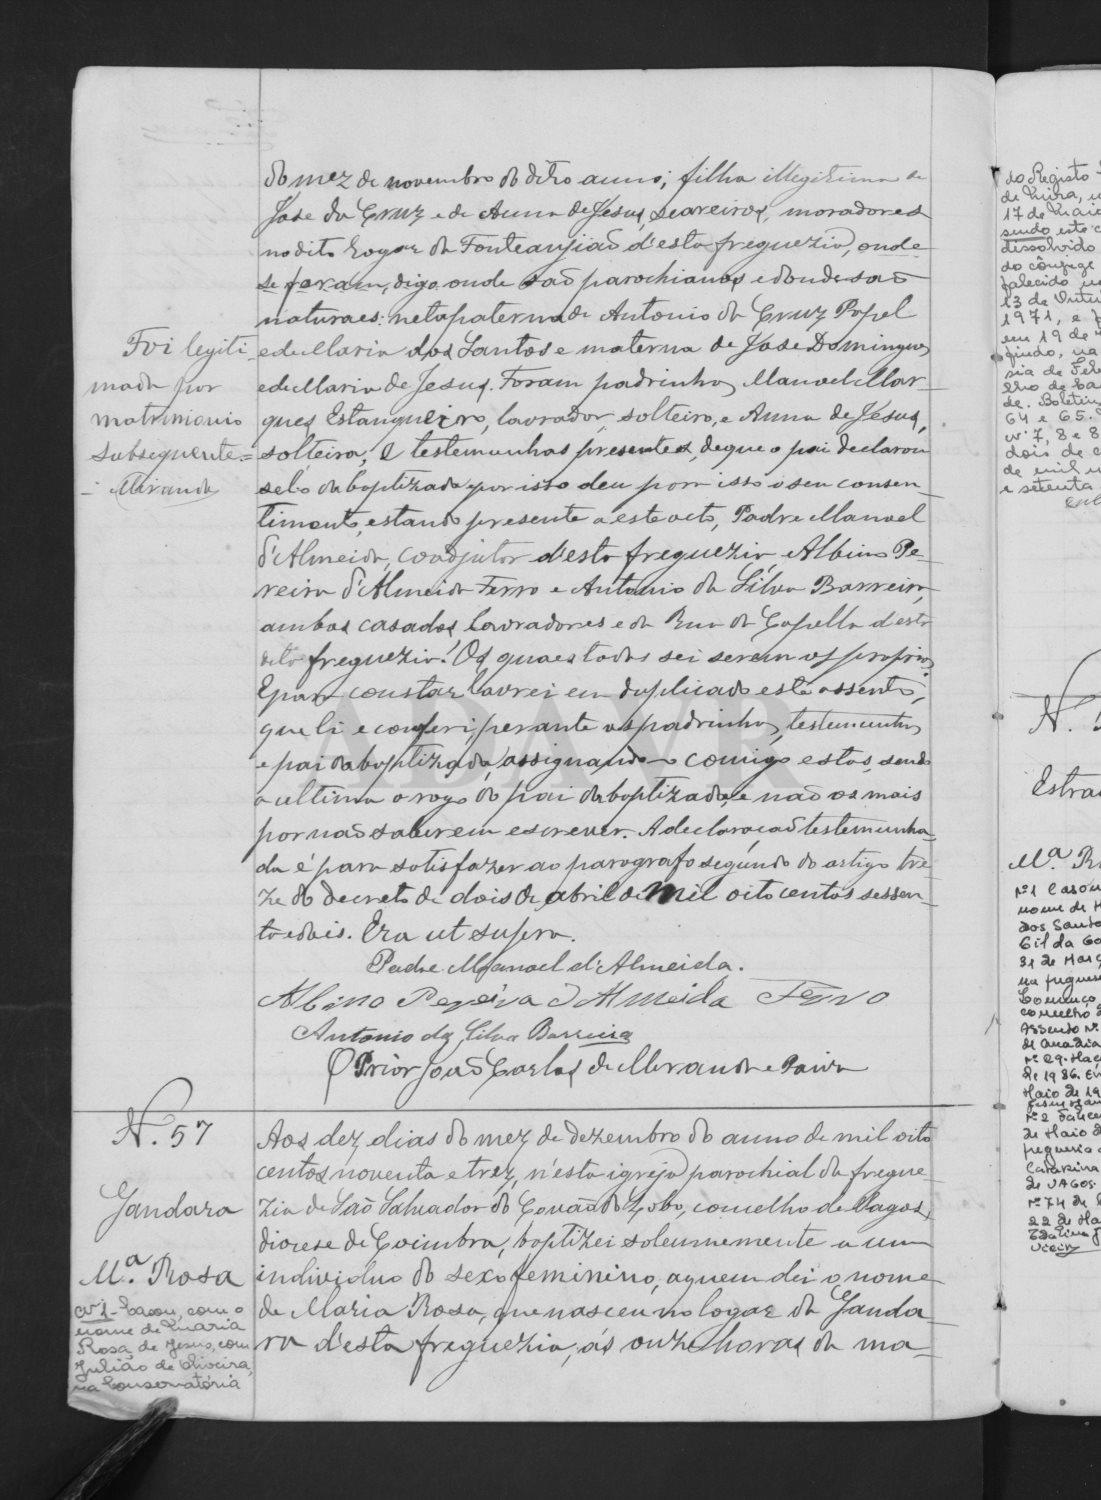 do mez de novembro do dito anno; filha illegitima de
José da Cruz e de Anna de Jesus, seareiros, moradores
no dito logar da Fonte anjião d'esta freguezia, onde
se foram, digo onde são parochianos e donde são
naturaes: neta paterna de Antonio da Cruz Papel
e de Maria dos Santos e materna de José Domingues
e de Maria de Jesus. Foram padrinhos Manoel Mar-
ques Estanqueiro, lavrador, solteiro, e Anna de Jesus,
solteira; e testemunhas presentes, de que o pai declarou
sel-o da baptizada e por isso deu para isso o seu consen-
timento, estando presente a este acto, Padre Manoel
d'Almeida, coadjutor d'esta freguezia, e Albino Pe-
reira d'Almeida Ferro e Antonio da Silva Barreira,
ambos casados, lavradores e da Rua da Capella d'esta
dita freguezia. Os quaes todos sei serem os proprios.
E para constar lavrei em duplicado este assento,
que li e conferi perante os padrinhos, testemunhas
e pai da baptizada, assignando comigo estas, sendo
a ultima a rogo do pai da baptizada, e não os mais
por não saberem escrever. A declaração testemunha-
da é para satisfazer ao paragrafo segundo do artigo tre-
ze do decreto de dois de abril de mil oitocentos sessen-
ta e dois. Era ut supra.
Padre Manoel d'Almeida.
Albino Pereira d'Almeida Ferro
Antonio da Silva Barreira
O Prior João Carlos de Miranda e Paiva
Foi legiti-
mada por
matrimonio
subsequente.=
= Miranda
N. 57
Gandara
M.ª Rosa
Nº 1 - Casou, com o
nome de Maria
Rosa de Jesus, com
Julião de Oliveira,
na Conservatória
Aos dez dias do mez de dezembro do anno de mil oito
centos noventa e trez, n'esta igreja parochial da fregue-
zia de São Salvador do Covão do Lobo, concelho de Vagos,
diocese de Coimbra, baptizei solemnemente a um
individuo do sexo feminino, a quem dei o nome
de Maria Rosa, que nasceu no logar da Ganda-
ra d'esta freguezia, ás onze horas da ma-
do Registo
de Mira,
17 de Maio
sendo este
dissolvido
do cônjuge
falecido
13 de
1971, e
em 19 de
64 e 65.
nº 7, 8 e 8
dois de
de mil
e setenta
N.
Estra
M.ª R
Nº 1 Casou
nome de
dos Santo
Gil da
31 de Març
na fregues
concelho
Assento Nº
de Anadia
Nº 29. Maç
de 1936.
Maio de 19
Nº 2 Falec
de Maio d
freguesia
de VAGOS.
Nº 74 de
22 de Ma
ADAVR